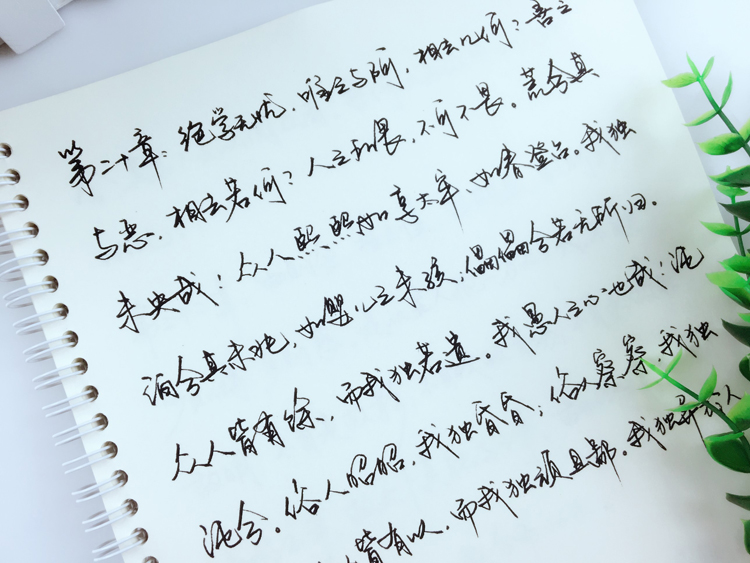 第二十章：绝学无忧，唯之与阿，相去几何？善之
与恶，相去若何？人之所畏，不可不畏。荒兮其
未央哉！众人熙熙如享太牢、如春登台。我独
泊兮其未兆，如婴儿之未孩；儡儡兮若无所归。
众人皆有余，而我独若遗。我愚人之心也哉！沌
沌兮。俗人昭昭，我独昏昏；俗人察察，我独
皆有以，而我独顽且鄙。我独异于人